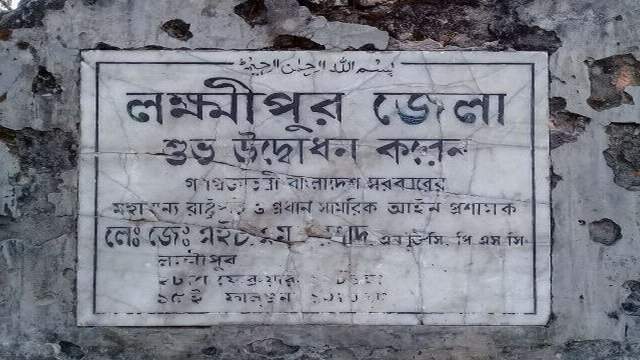 بسم الله الرحمن الرحيم
লক্ষ্মীপুর জেলা
শুভ উদ্বোধন করেন
গণপ্রজাতন্ত্রী বাংলাদেশ সরকারের
মহামান্য রাষ্ট্রপতি ও প্রধান সামরিক আইন প্রশাসক
লেঃ জেঃ এইচ এম এরশাদ এনডিসি, পি এস সি
লক্ষ্মীপুর
ফাল্গুন